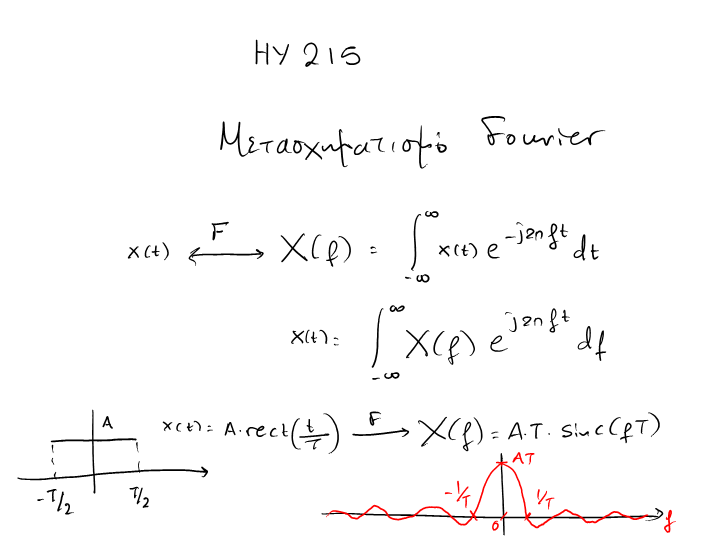 ΗΥ 215
Μετασχηματισμό Fourier
x(t) F ⟷ X(f) = ∫_{-∞}^{∞} x(t) e^{-j2πft} dt
x(t) = ∫_{-∞}^{∞} X(f) e^{j2πft} df
A x(t) = A.rect(t/T) F ⟶ X(f) = A.T. sinc(fT)
-T/2 T/2
AT
-1/T 1/T
0 f